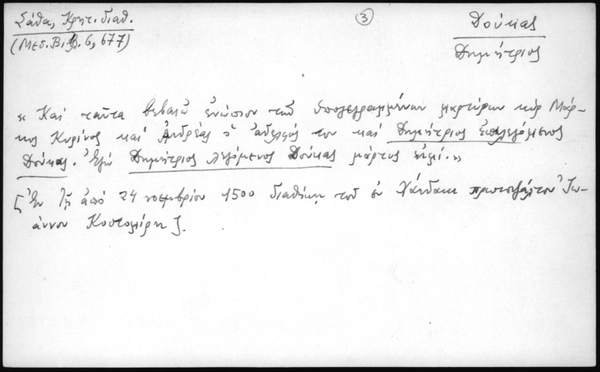 Σάθα, Κρητ. διαθ.
(Μεσ. Β. 6, 677)
3
Δούκας
Δημήτριος
« Καί ταῦτα βεβαιῶ ἐνώπιον τῶν ὑπογεγραμμένων μαρτύρων κύρ Μάρ-
κος Κυρίνος καί Ἀνδρέας ὁ ἀδελφός του καί Δημήτριος ἐπιλεγόμενος
Δούκας. Ἐγώ Δημήτριος λεγόμενος Δούκας μάρτυς εἰμί.»
[Ἐν τῇ ἀπό 24 νοεμβρίου 1500 διαθήκῃ τοῦ ἐν Χάνδακι πρωτοψάλτου Ἰω-
άννου].